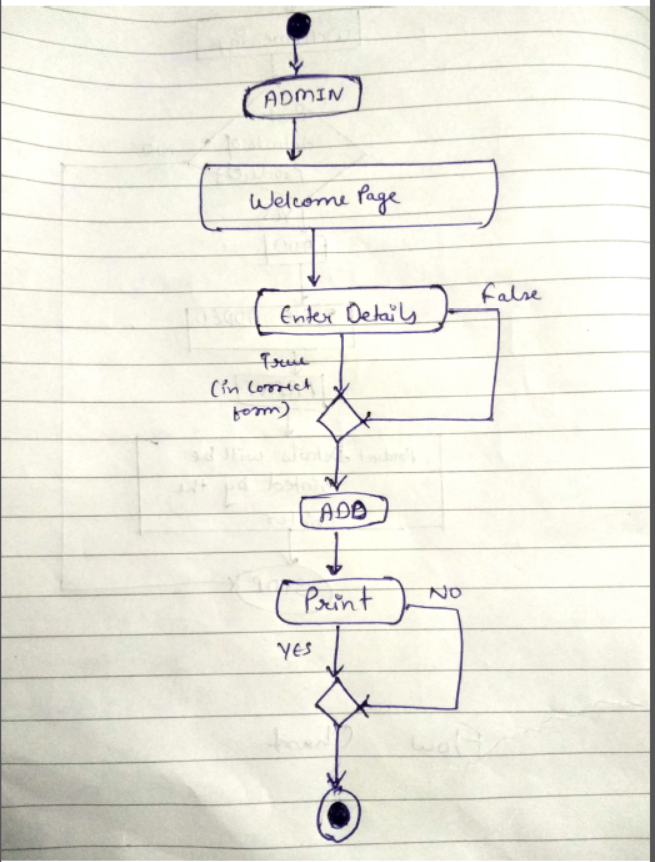 ADMIN
Welcome Page
Enter Details
False
True
(in correct
form)
ADD
Print
NO
YES